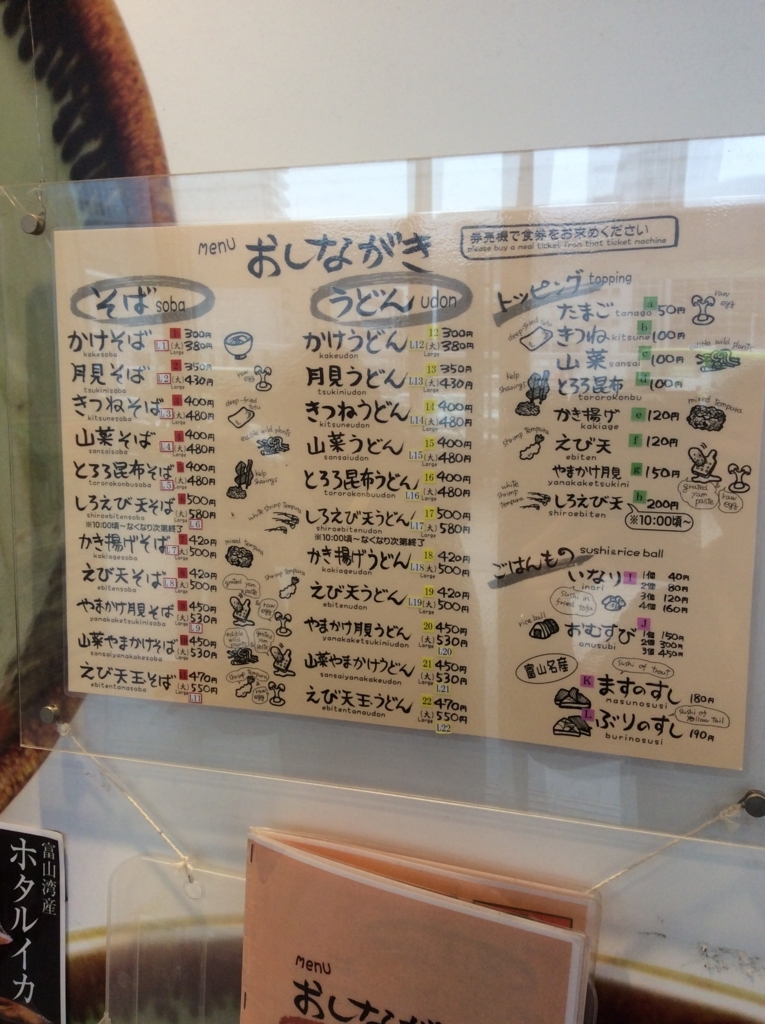 menu おしながき
券売機で食券をお求めください
please buy a meal ticket from that ticket machine
そば soba
かけそば 1 300円
kakesoba L1 (大) 380円
Large
月見そば 2 350円
tsukinisoba L2 (大) 430円
Large
きつねそば 3 400円
kitsunesoba L3 (大) 480円
Large
山菜そば 4 400円
sansaisoba L4 (大) 480円
Large
とろろ昆布そば 5 400円
tororokonbusoba L5 (大) 480円
Large
しろえび天そば 6 500円
shiroebitensoba (大) 580円
Large L6
※10:00頃～なくなり次第終了
かき揚げそば 7 420円
kakiagesoba L7 (大) 500円
Large
えび天そば 8 420円
ebitensoba L8 (大) 500円
Large
やまかけ月見そば 9 450円
yamakaketsukinisoba (大) 530円
Large L9
山菜やまかけそば 450円
sansaiyanakakesoba (大) 530円
Large
えび天玉そば 470円
ebitentamasoba (大) 550円
Large L11
raw egg
deep-fried tofu
edible wild plants
kelp shavings
white shrimp tempura
mixed tempura
shrimp tempura
grated yam paste
& raw egg
うどん udon
かけうどん 12 300円
kakeudon L12 (大) 380円
Large
月見うどん 13 350円
tsukiniudon L13 (大) 430円
Large
きつねうどん 14 400円
kitsuneudon L14 (大) 480円
Large
山菜うどん 15 400円
sansaiudon L15 (大) 480円
Large
とろろ昆布うどん 16 400円
tororokonbuudon L16 (大) 480円
Large
しろえび天うどん 17 500円
shiroebitenudon L17 (大) 580円
Large
※10:00頃～なくなり次第終了
かき揚げうどん 18 420円
kakiageudon L18 (大) 500円
Large
えび天うどん 19 420円
ebitenudon L19 (大) 500円
Large
やまかけ月見うどん 20 450円
yanakaketsukiniudon (大) 530円
Large L20
山菜やまかけうどん 21 450円
sansaiyanakakeudon (大) 530円
Large L21
えび天玉うどん 22 470円
ebitentamaudon (大) 550円
Large L22
トッピング topping
たまご tamago a 50円
raw egg
きつね kitsune b 100円
deep-fried tofu
山菜 sansai c 100円
edible wild plants
とろろ昆布 d 100円
tororokonbu
kelp shavings
かき揚げ e 120円
kakiage
mixed tempura
えび天 f 120円
ebiten
shrimp tempura
やまかけ月見 g 150円
yamakaketsukini
grated yam paste
raw egg
しろえび天 h 200円
shiroebiten
white shrimp tempura
※10:00頃～
ごはんもの sushi&rice ball
いなり I 1個 40円
inari 2個 80円
3個 120円
4個 160円
sushi in fried tofu
おむすび J 1個 150円
omusubi 2個 300円
3個 450円
rice ball
富山名産
sushi of trout
K ますのすし 180円
masunosusi
sushi of yellow tail
L ぶりのすし 190円
burinosusi
富山湾産
ホタルイカ
menu
おしながき